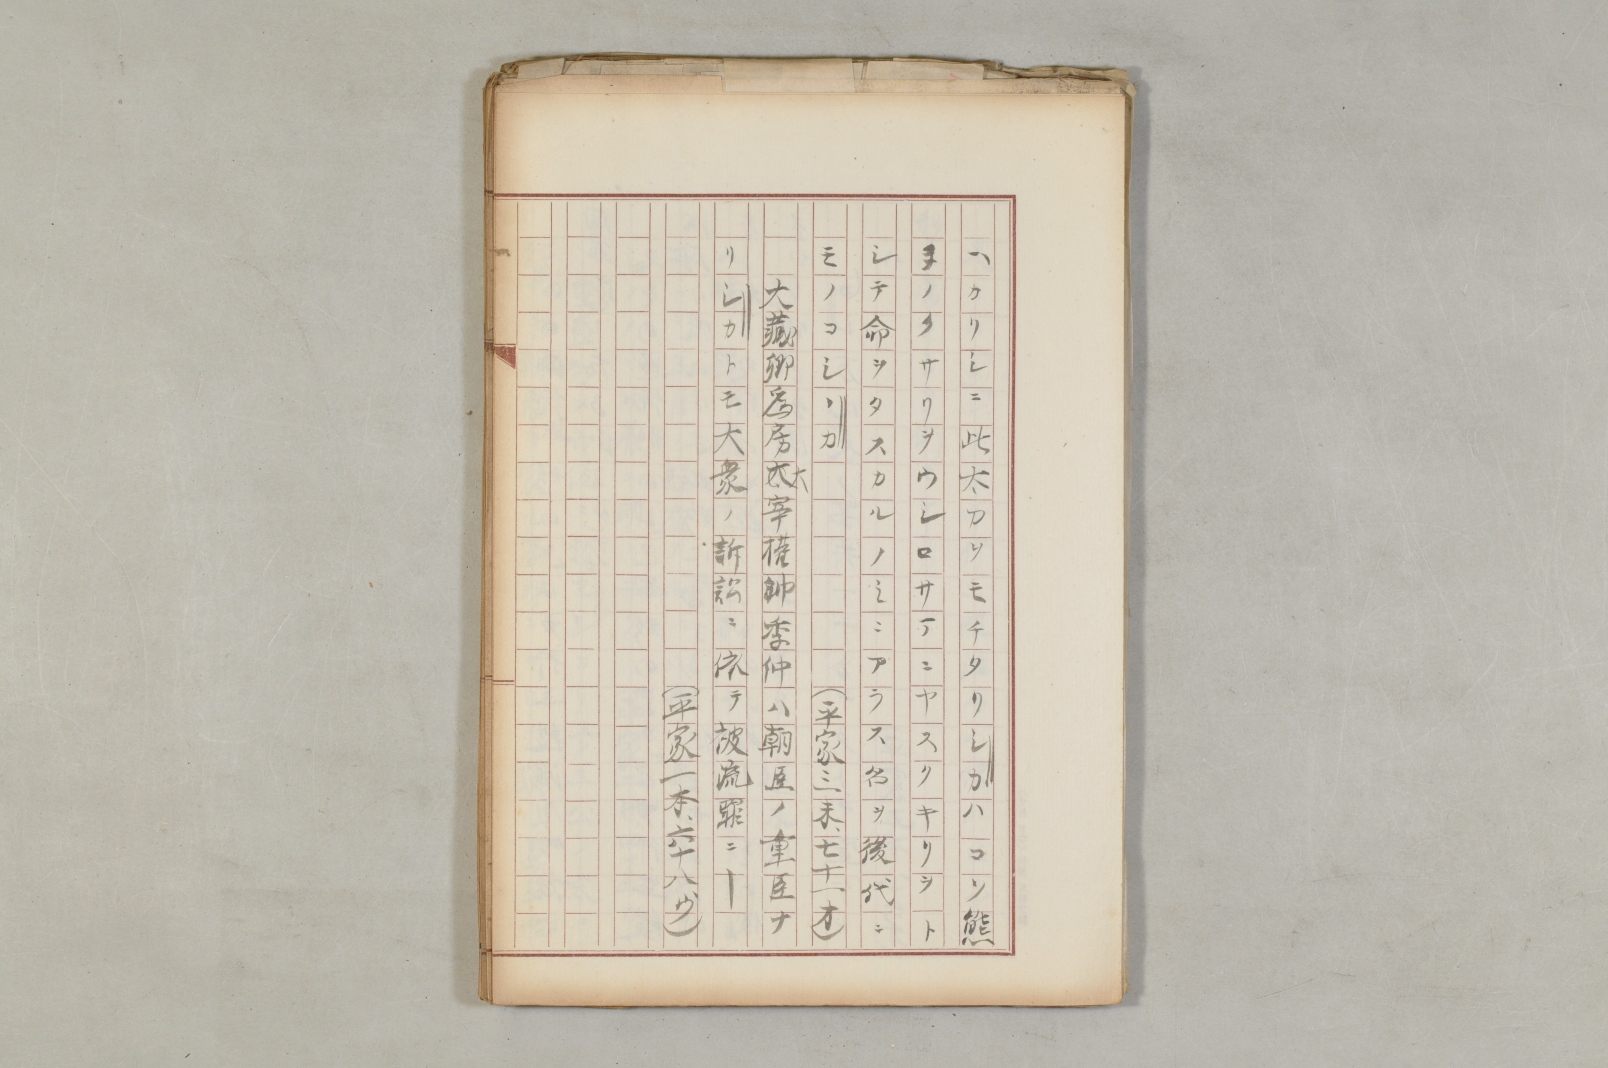 ハカリシニ此太刀ヲモチタリシカハコソ熊
手ノクサリヲウシロサマニヤスクキリヲト
シテ命ヲタスカルノミニアラス名ヲ後代ニ
モノコシシカ　（平家三末、七十一オ）
大藏卿為房太宰権帥季仲ハ朝庭ノ重臣ナ
大
リシカトモ大衆ノ訴訟ニ依テ被流罪ニー
（平家一本、六十八ウ）